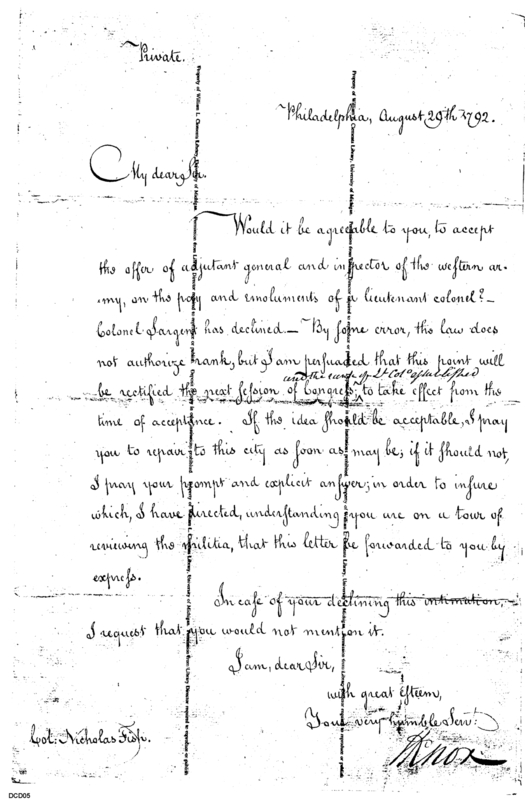 Private.
Philadelphia, August 29th 1792.
My dear Sir.
Would it be agreeable to you, to accept
the offer of adjutant general and inspector of the western ar-
my, on the pay and emoluments of a lieutenant colonel? —
Colonel Sargent has declined — By some error, the law does
not authorize rank, but I am persuaded that this point will
and the rank of Lt Colo established
be rectified the next session of Congress, to take effect from the
time of acceptance. If the idea should be acceptable, I pray
you to repair to this city as soon as may be; if it should not,
I pray your prompt and explicit answer; in order to insure
which, I have directed, understanding you are on a tour of
reviewing the militia, that this letter be forwarded to you by
express.
In case of your declining this intimation,
I request that you would not mention it.
I am, dear Sir,
with great esteem,
Your very humble Servt
HKnox
Col: Nicholas Fish.
DCD05